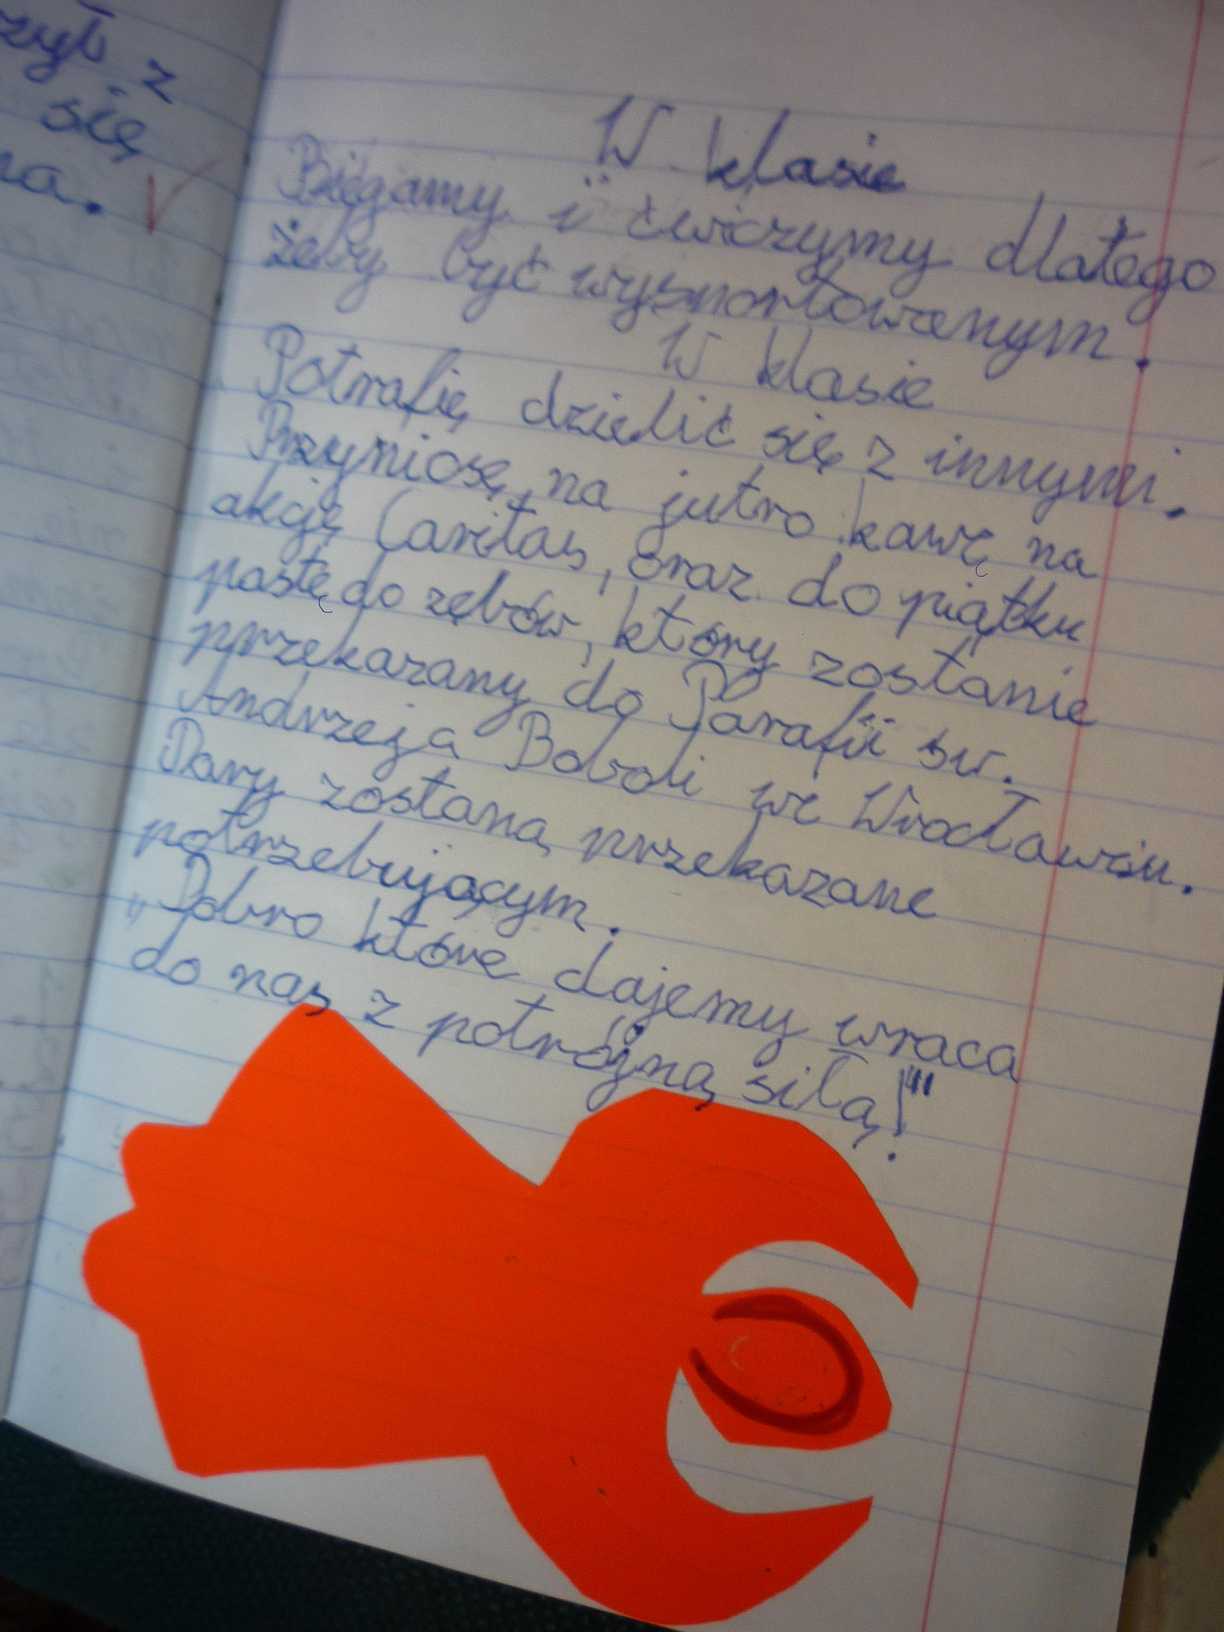 zył z
się
na.
W klasie
Biegamy i ćwiczymy dlatego
żeby być wysportowanym.
W klasie
Potrafię dzielić się z innymi.
Przyniosę na jutro kawę na
akcję Caritas, oraz do piątku
pastę do zębów, który zostanie
przekazany do Parafii św.
Andrzeja Boboli we Wrocławiu.
Dary zostaną przekazane
potrzebującym.
„Dobro które dajemy wraca
do nas z potrójną siłą!"